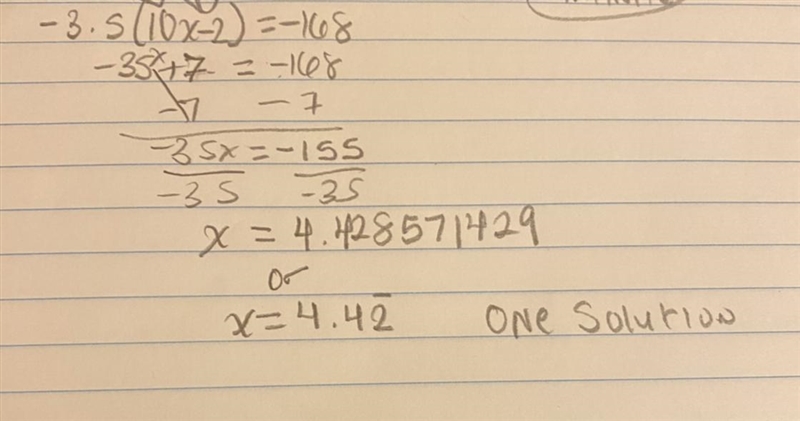 -3.5(10x-2)=-168
-35x+7 = -168
-7 -7
-35x=-155
-35 -35
x = 4.428571429
or
x=4.42̅ One Solution